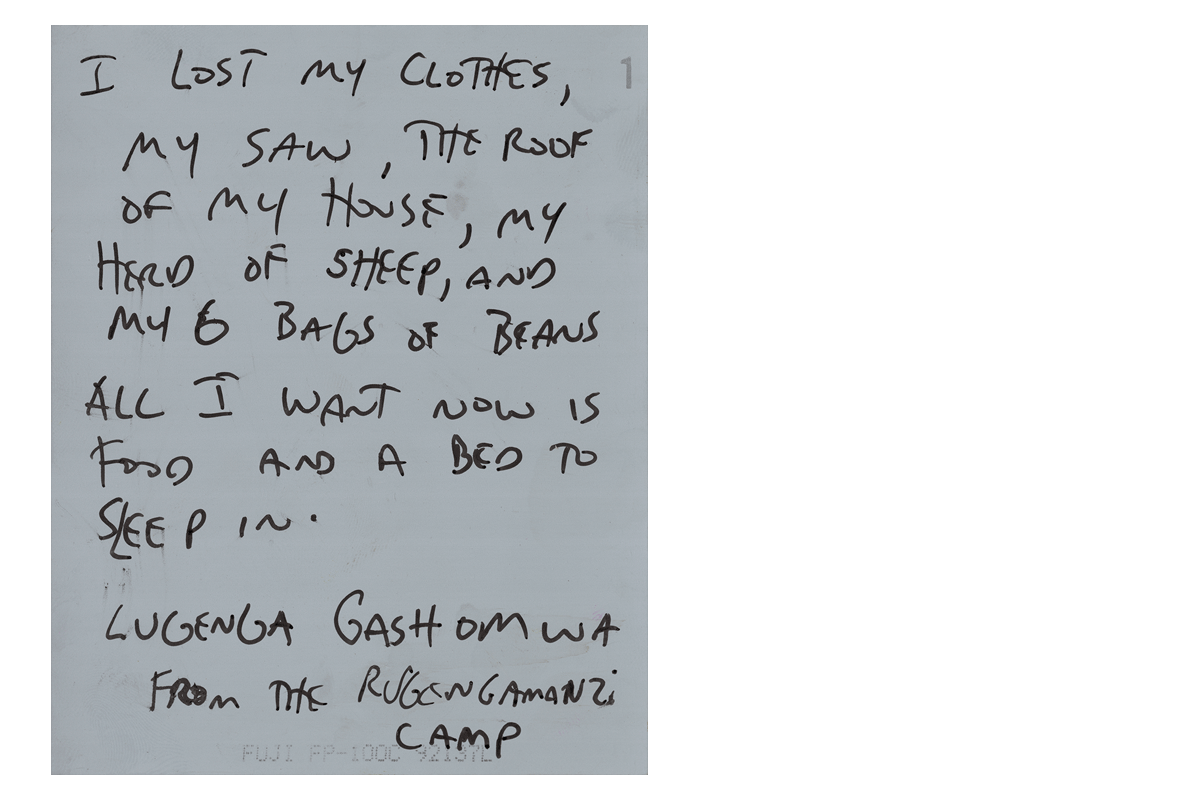 I LOST MY CLOTHES, 1
MY SAW, THE ROOF
OF MY HOUSE, MY
HERD OF SHEEP, AND
MY 6 BAGS OF BEANS
ALL I WANT NOW IS
FOOD AND A BED TO
SLEEP IN.
LUGENGA GASHOMWA
FROM THE RUGENGAMANZi
CAMP
FUJI FP-100C 92137L